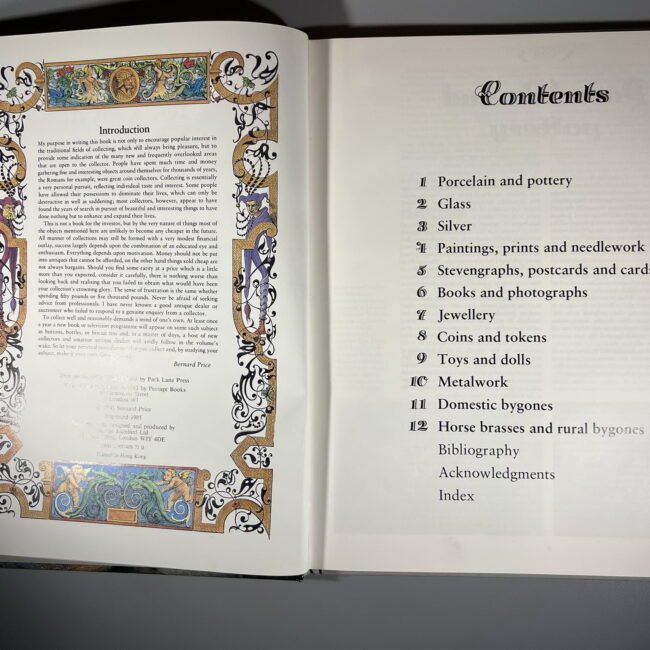 Introduction
My purpose in writing this book is not only to encourage popular interest in
the traditional fields of collecting, which will always bring pleasure, but to
provide some indication of the many new and frequently overlooked areas
that are open to the collector. People have spent much time and money
gathering fine and interesting objects around themselves for thousands of years,
the Romans for example, were great coin collectors. Collecting is essentially
a very personal pursuit, reflecting individual taste and interest. Some people
have allowed their possessions to dominate their lives, which can only be
destructive as well as saddening; most collectors, however, appear to have
found the years of search in pursuit of beautiful and interesting things to have
done nothing but to enhance and expand their lives.
This is not a book for the investor, but by the very nature of things most of
the objects mentioned here are unlikely to become any cheaper in the future.
All manner of collections may still be formed with a very modest financial
outlay, success largely depends upon the combination of an educated eye and
enthusiasm. Everything depends upon motivation. Money should not be put
into antiques that cannot be afforded, on the other hand things sold cheap are
not always bargains. Should you find some rarity at a price which is a little
more than you expected, consider it carefully, there is nothing worse than
looking back and realising that you failed to obtain what would have been
your collector's crowning glory. The sense of frustration is the same whether
spending fifty pounds or five thousand pounds. Never be afraid of seeking
advice from professionals. I have never known a good antique dealer or
auctioneer who failed to respond to a genuine enquiry from a collector.
To collect well and reasonably demands a mind of one's own. At least once
a year a new book or television programme will appear on some such subject
as buttons, bottles, or biscuit tins and, in a matter of days, a host of new
collectors and amateur antique dealers will avidly follow in the volume's
wake. So let your personal taste dictate what you collect and, by studying your
subject, make it your own.
Bernard Price
by Park Lane Press
by Peerage Books
London W1
Bernard Price
1985
designed and produced by
Ltd
London W1Y 4DE
Printed in Hong Kong
Contents
1 Porcelain and pottery
2 Glass
3 Silver
4 Paintings, prints and needlework
5 Stevengraphs, postcards and cards
6 Books and photographs
7 Jewellery
8 Coins and tokens
9 Toys and dolls
10 Metalwork
11 Domestic bygones
12 Horse brasses and rural bygones
Bibliography
Acknowledgments
Index